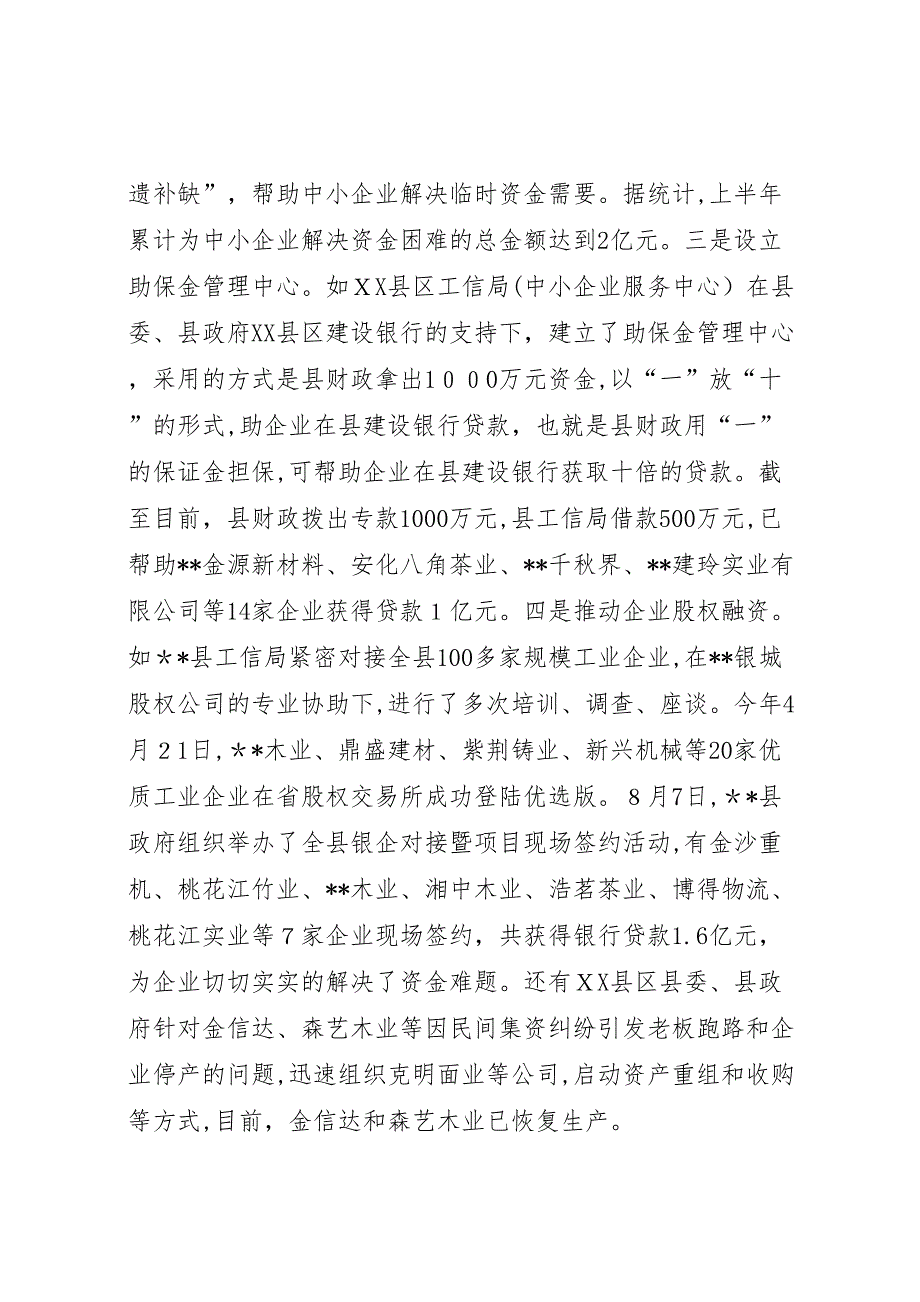 遗补缺”，帮助中小企业解决临时资金需要。据统计,上半年
累计为中小企业解决资金困难的总金额达到2亿元。三是设立
助保金管理中心。如XX县区工信局(中小企业服务中心）在县
委、县政府XX县区建设银行的支持下，建立了助保金管理中心
，采用的方式是县财政拿出1０00万元资金,以“一”放“十
”的形式,助企业在县建设银行贷款，也就是县财政用“一”
的保证金担保,可帮助企业在县建设银行获取十倍的贷款。截
至目前，县财政拨出专款1000万元,县工信局借款500万元,已
帮助**金源新材料、安化八角茶业、**千秋界、**建玲实业有
限公司等14家企业获得贷款１亿元。四是推动企业股权融资。
如＊*县工信局紧密对接全县100多家规模工业企业,在**银城
股权公司的专业协助下,进行了多次培训、调查、座谈。今年4
月２1日,＊*木业、鼎盛建材、紫荆铸业、新兴机械等20家优
质工业企业在省股权交易所成功登陆优选版。８月7日,＊*县
政府组织举办了全县银企对接暨项目现场签约活动,有金沙重
机、桃花江竹业、**木业、湘中木业、浩茗茶业、博得物流、
桃花江实业等７家企业现场签约，共获得银行贷款1.6亿元，
为企业切切实实的解决了资金难题。还有ＸX县区县委、县政
府针对金信达、森艺木业等因民间集资纠纷引发老板跑路和企
业停产的问题,迅速组织克明面业等公司,启动资产重组和收购
等方式,目前，金信达和森艺木业已恢复生产。